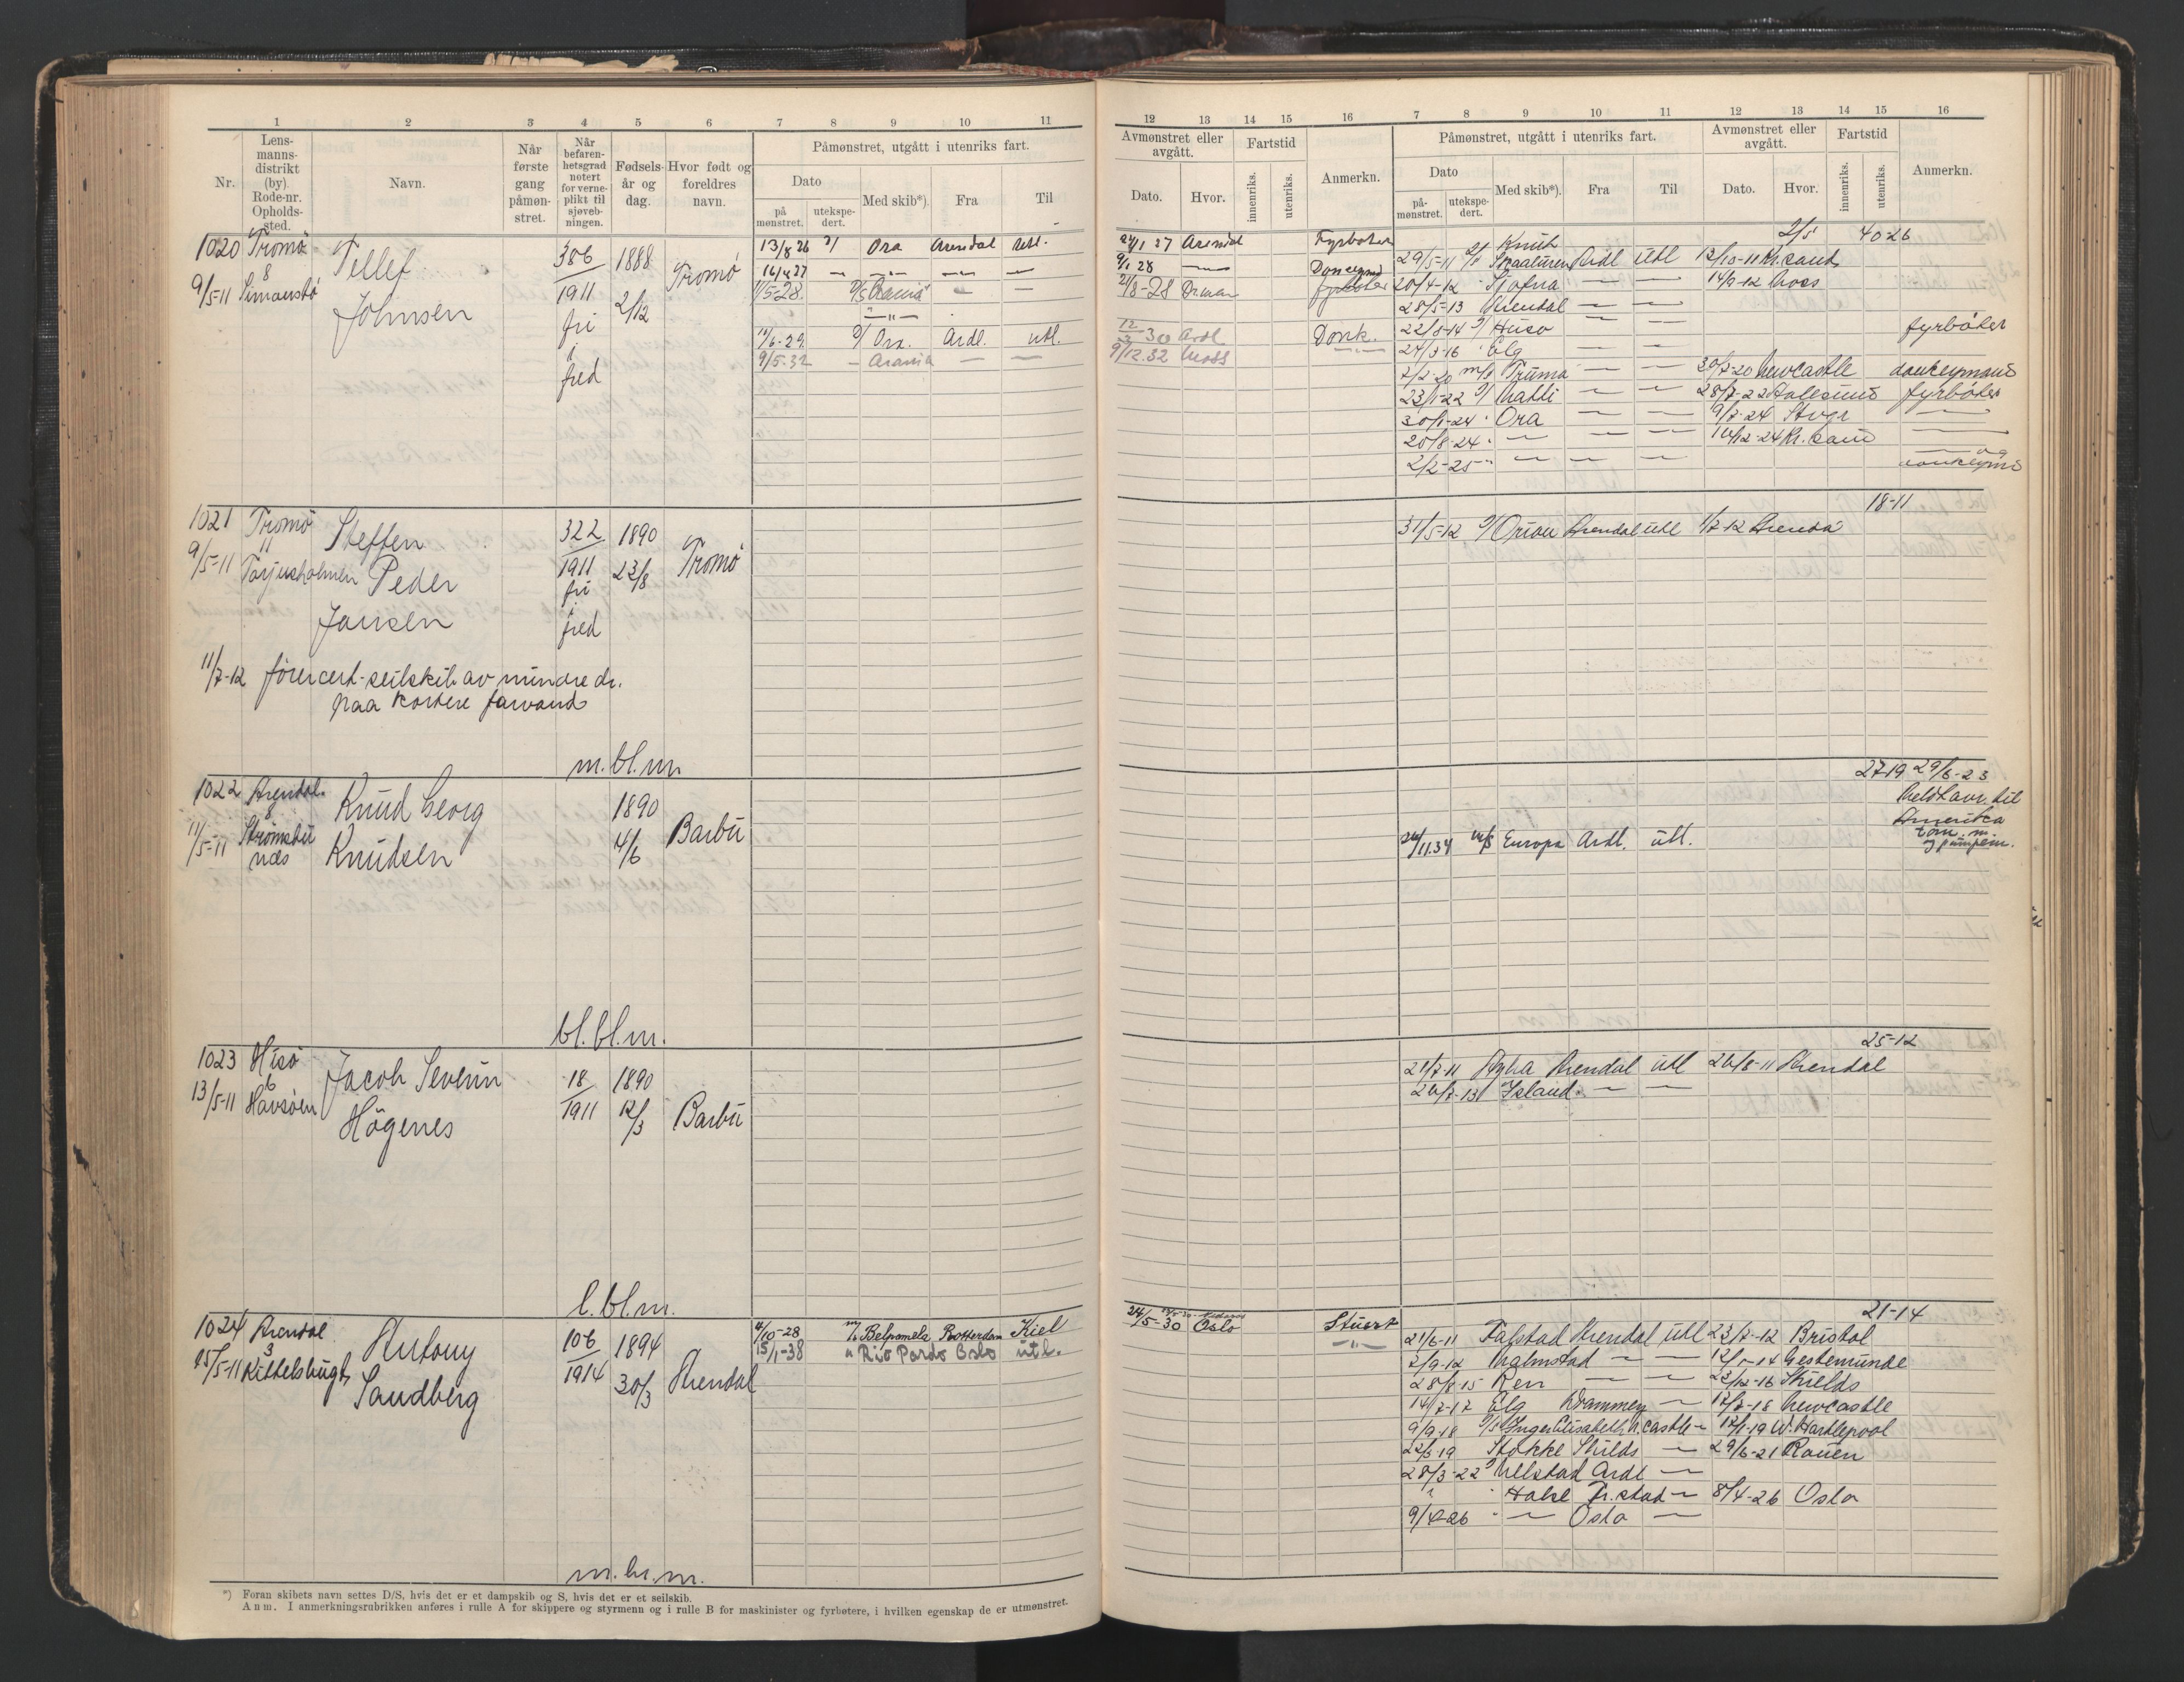 1 2 3 4 5 6 7 8 9 10 11
Nr.
Lensmannsdistrikt (by) Rode-nr. Opholdssted.
Navn.
Når første gang påmønstret.
Når befarenhetsgrad notert for verneplikt til sjøvebningen.
Fødselsår og dag.
Hvor født og foreldres navn.
Påmønstret, utgått i utenriks fart.
Dato
på mønstret.
utekspedert.
Med skib*).
Fra
Til
12 13 14 15 16 7 8 9 10 11 12 13 14 15 16
Avmønstret eller avgått.
Dato.
Hvor.
Fartstid
innenriks.
utenriks.
Anmerkn.
Påmønstret, utgått i utenriks fart.
Dato
påmønstret.
utekspedert.
Med skib*).
Fra
Til
Avmønstret eller avgått.
Dato.
Hvor.
Fartstid
innenriks.
utenriks.
Anmerkn.
1020 Tromö
8
9/5-11 Simonstö
Tellef
Johnsen
386
1911
fri
i
fred
1888
2/12
Tromö
13/8 26 Ora Arendal utl.
16/4 27 — — — —
1/5-28.
Ora. Ardl. utl.
9/5-32 — Arania — —
27 Arendal Fyrböter
9/1 28 —
30 Ardl Donk.
9/12.32 Moss
2/5 40-26
29/5-11 Knut Skaaluren Ardl Utl 13/10-11 Kr.sand
20/4-12 — —
28/5-13 Arendal — —
22/8-14 Huso — — fyrböter
Elg — —
2/2-20 m/s Truma — — Newcastle donkeymand
23/1-22 Matti — — Aalesund fyrböter
30/1-24 Ora — — 9/7-24 Stvgr —
20/8-24 — — — Kr.sand —
2/2-25 — — — og
donkeymd
1021 Tromö
11
9/5-11 Torjusholmen
Steffen
Peder
Jansen
322
1911
fri
i
fred
1890
23/8
Tromö
11/7-12 förercert. seilskib av mindre dr.
paa kortere farvand
m.bl.m.
18-11
31/5-12 Orion Arendal utl 1/7-12 Arendal
1022 Arendal.
8
11/5-11 Strömsbu
næs
Knud Georg
Knudsen
1890
4/6
Barbu
bl.bl.m.
27-19 29/6-23
Meldt avr. til
Amerika
11.34 m/s Europa Ardl. utl.
tom. m.
og pumpem.
1023 Hisö
6
13/5-11 Havsöen
Jacob Severin
Högenes
18
1911
1890
12/3
Barbu
l.bl.m.
25-12
21/7-11 Arendal utl 26/8-11 Arendal
26/7-13 Island. — —
1024 Arendal
3
15/5-11 Kittelsbugt
Antony
Sandberg
106
1914
1894
30/3
Arendal
m.br.m.
4/10-28 m/s Belpamela Rotterdam Kiel
15/1-38 " Rio Pardo Oslo utl.
24/5-30 Oslo Stuert
—"—
21-14
21/6-11 Falstad Arendal utl 23/7-12 Bristol
2/9-12 Malmstad — — Gestemünde
28/8-15 Ren — — Shields
14/7-17 Elg — 12/7-18 Newcastle
9/9-18 Inger Elisabeth N.castle — 12/1-19 W. Hartlepool
22/3-19 Stokke Shilds — 29/6-21 Rouen
28/3-22 Ardl —
Fr.stad — 8/4-26 Oslo
9/4-26 — Oslo —
*) Foran skibets navn settes D/S, hvis det er et dampskib og S, hvis det er et seilskib.
Anm. I anmerkningsrubrikken anføres i rulle A for skippere og styrmenn og i rulle B for maskinister og fyrbøtere, i hvilken egenskap de er utmønstret.